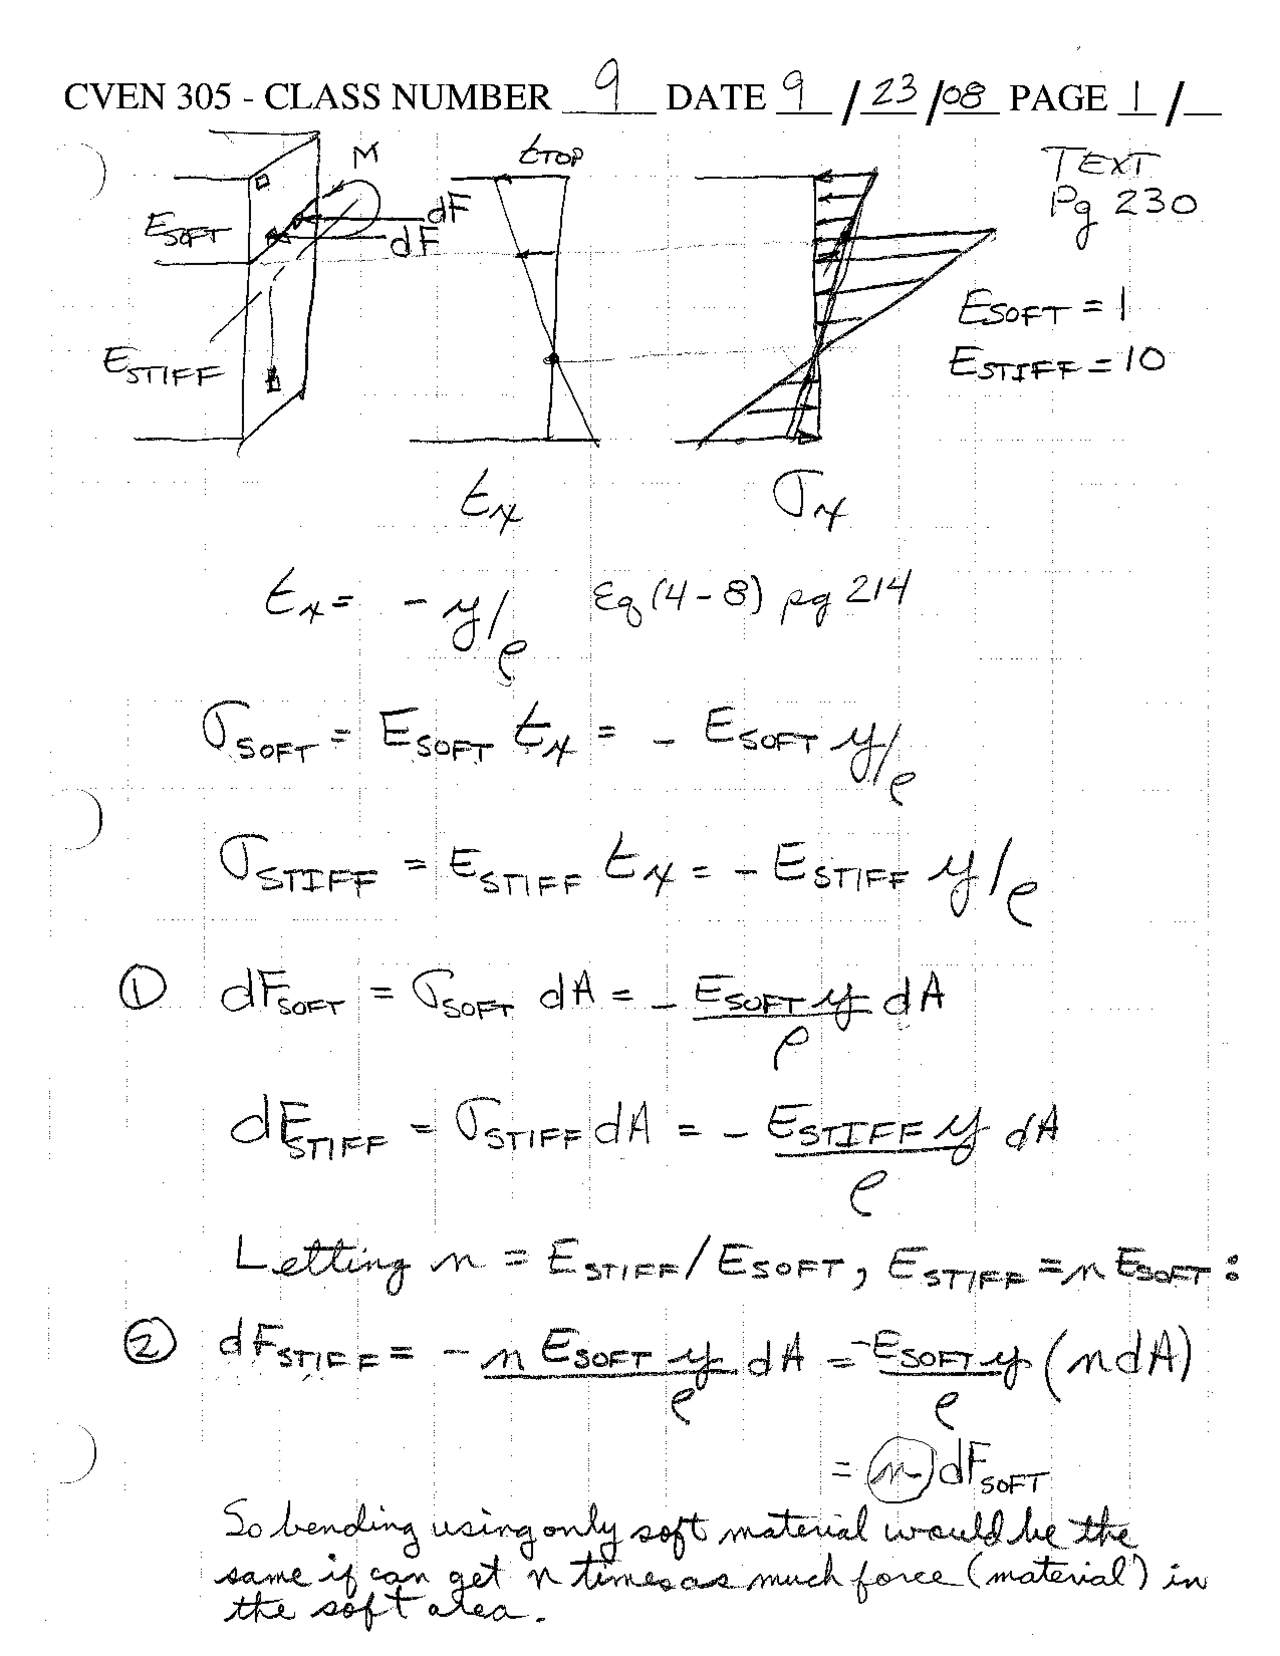 CVEN 305 - CLASS NUMBER 9 DATE 9 / 23 / 08 PAGE 1 / __
M
ε_TOP
TEXT
Pg 230
E_SOFT
dF
dF
E_SOFT = 1
E_STIFF
E_STIFF = 10
ε_x
σ_x
ε_x = - y/ρ Eq (4-8) pg 214
σ_SOFT = E_SOFT ε_x = - E_SOFT y/ρ
σ_STIFF = E_STIFF ε_x = - E_STIFF y/ρ
① dF_SOFT = σ_SOFT dA = - E_SOFT y/ρ dA
dF_STIFF = σ_STIFF dA = - E_STIFF y/ρ dA
Letting n = E_STIFF/E_SOFT, E_STIFF = n E_SOFT :
② dF_STIFF = - n E_SOFT y/ρ dA = -E_SOFT y/ρ (n dA)
= n dF_SOFT
So bending using only soft material would be the
same if can get n times as much force (material) in
the soft area.